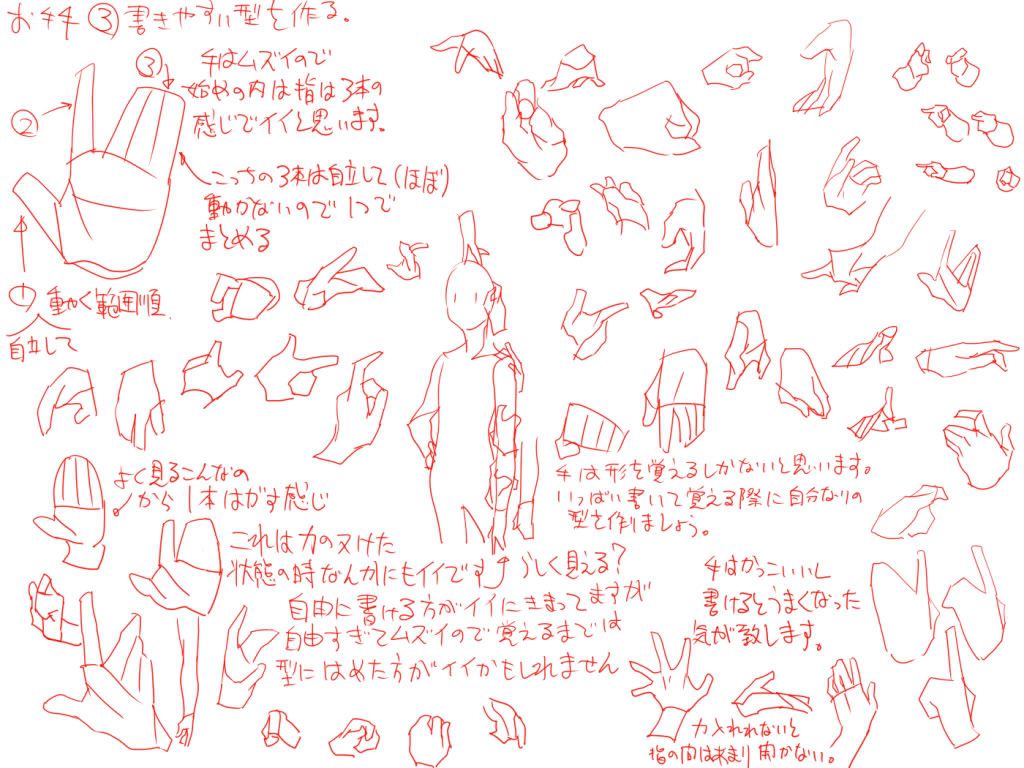 お手手 ③ 書きやすい型を作る。
③
手はムズイので
始めの内は指は3本の
感じでイイと思います。
②
こっちの3本は自立して(ほぼ)
動かないので1つで
まとめる
① 動く範囲順
自立して
よく見るこんなの
から1本はがす感じ
これは力のヌけた
状態の時なんかにもイイです
らしく見える?
自由に書ける方がイイにきまってますが
自由すぎてムズイので覚えるまでは
型にはめた方がイイかもしれません
手は形を覚えるしかないと思います。
いっぱい書いて覚える際に自分なりの
型を作りましょう。
手はかっこいいし
書けるとうまくなった
気が致します。
力入れないと
指の間はあまり開かない。